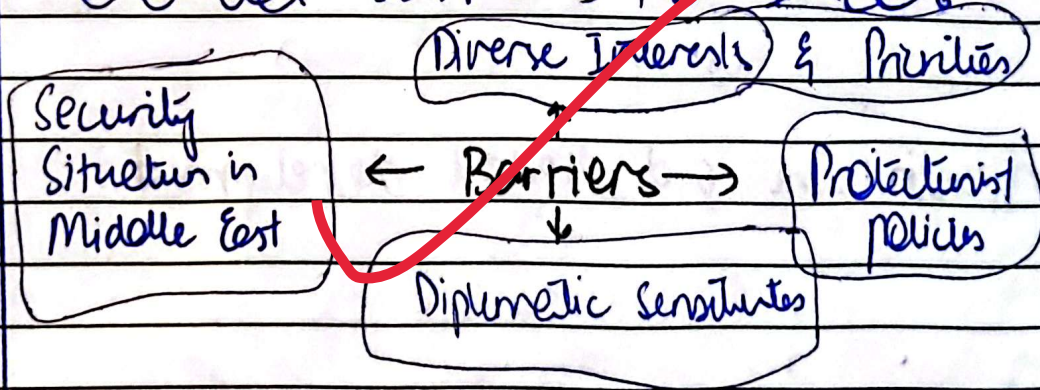 Diverse Interests & Priorities
Security
Situation in
Middle East
← Barriers →
Protectionist
policies
Diplomatic Sensitivites